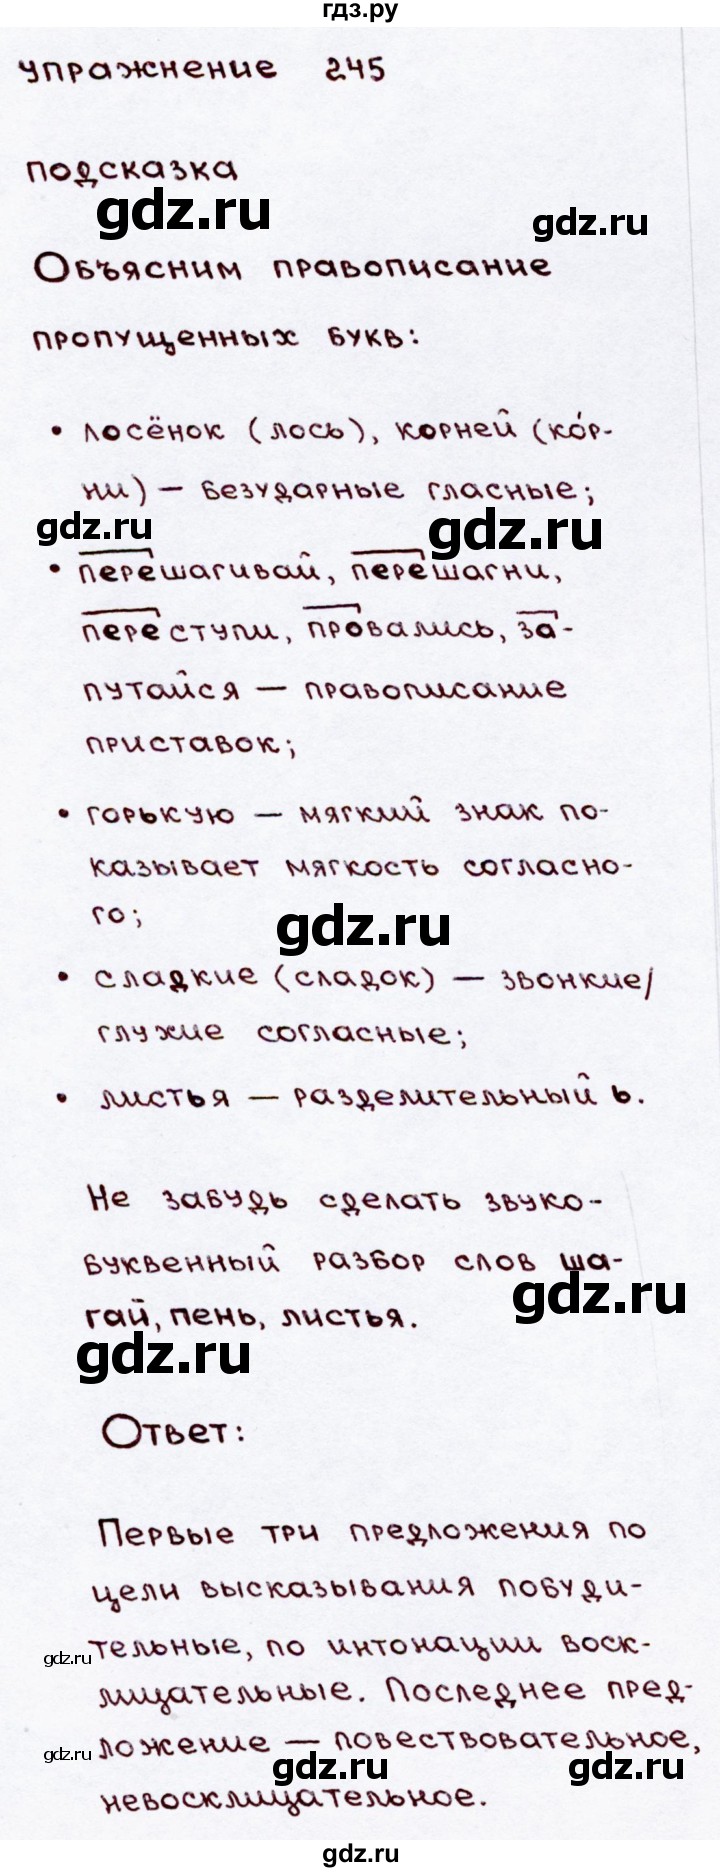 гдз.ру
упражнение 245
подсказка
gdz.ru
gdz.ru
Объясним правописание
пропущенных букв:
• лосёнок (лось), корней (ко́р-
ни) — безударные гласные;
gdz.ru
gdz.ru
• перешагивай, перешагни,
переступи, провались, за-
путайся — правописание
приставок;
• горькую — мягкий знак по-
казывает мягкость согласно-
го;
gdz.ru
• сладкие (сладок) — звонкие/
глухие согласные;
• листья — разделительный ь.
Не забудь сделать звуко-
буквенный разбор слов ша-
gdz.ru
гай, пень, листья.
gdz.ru
Ответ:
Первые три предложения по
цели высказывания побуди-
gdz.ru
тельные, по интонации воск-
лицательные. Последнее пред-
gdz.ru
ложение — повествовательное,
gdz.ru
gdz.ru
невосклицательное.
gdz.ru